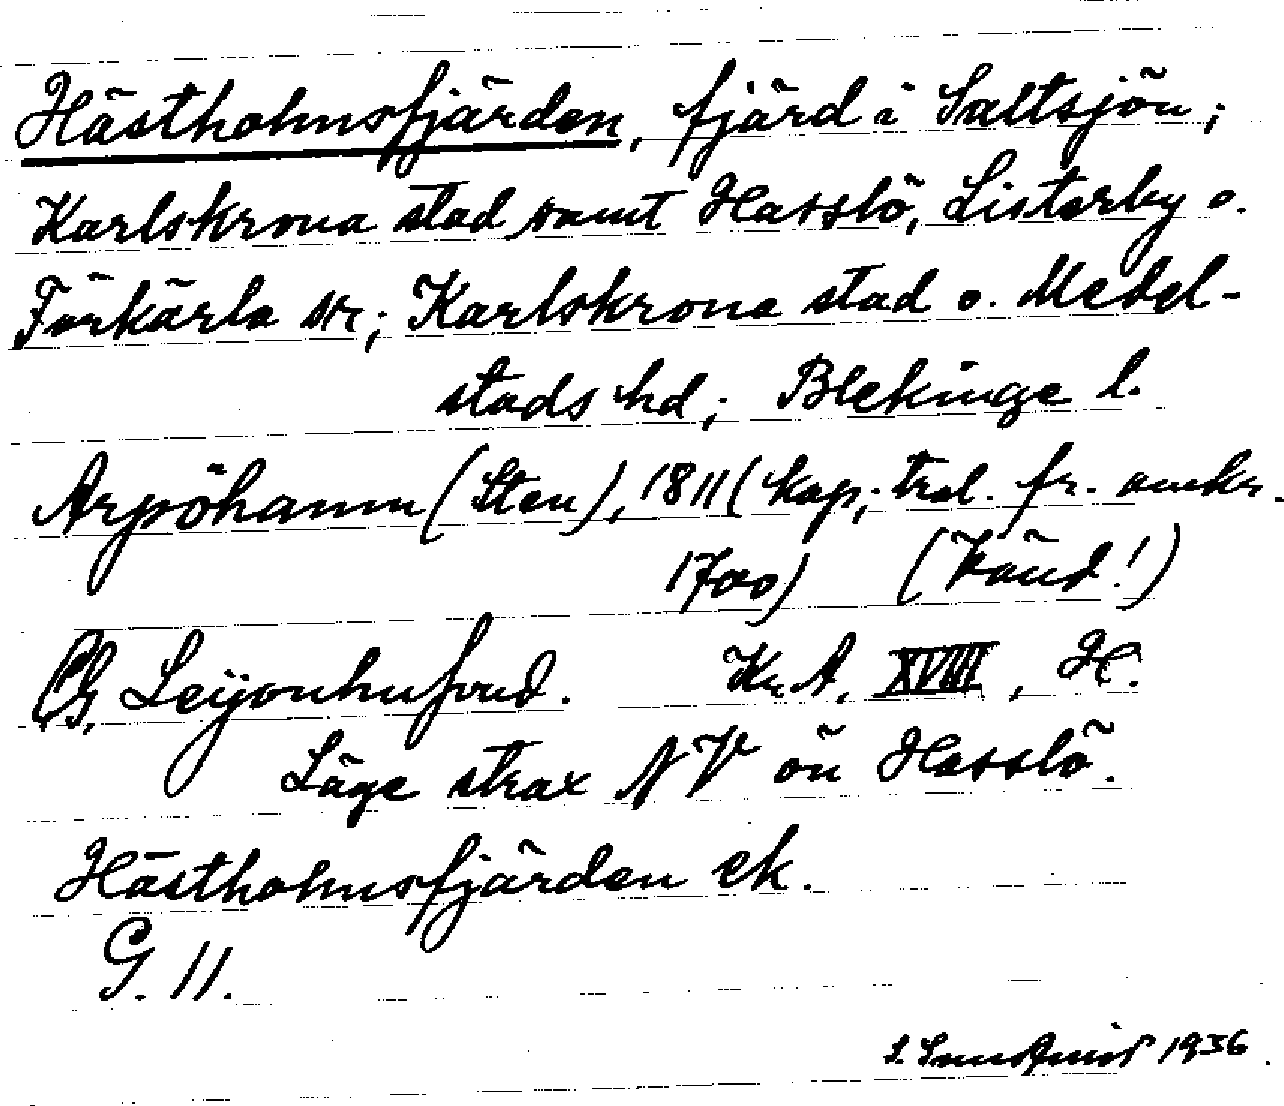 Hästholmsfjärden, fjärd i Saltsjön;
Karlskrona stad samt Hasslö, Listerby o.
Förkärla snr; Karlskrona stad o. Medel-
stads hd; Blekinge l.
Arpöhamn (Sten), 1811 (kop; trol. fr. omkr.
1700) (Känd!)
Ch. Leijonhufvud. Kr. A. XVIII, H.
Läge strax NV ön Hasslö.
Hästholmsfjärden ek.
G. 11.
1936.